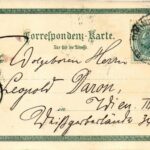 Correspondenz-Karte.
Nur für die Adresse.
Wolgeboren Herrn
Leopold Daron,
Wien
Weißgerberlände